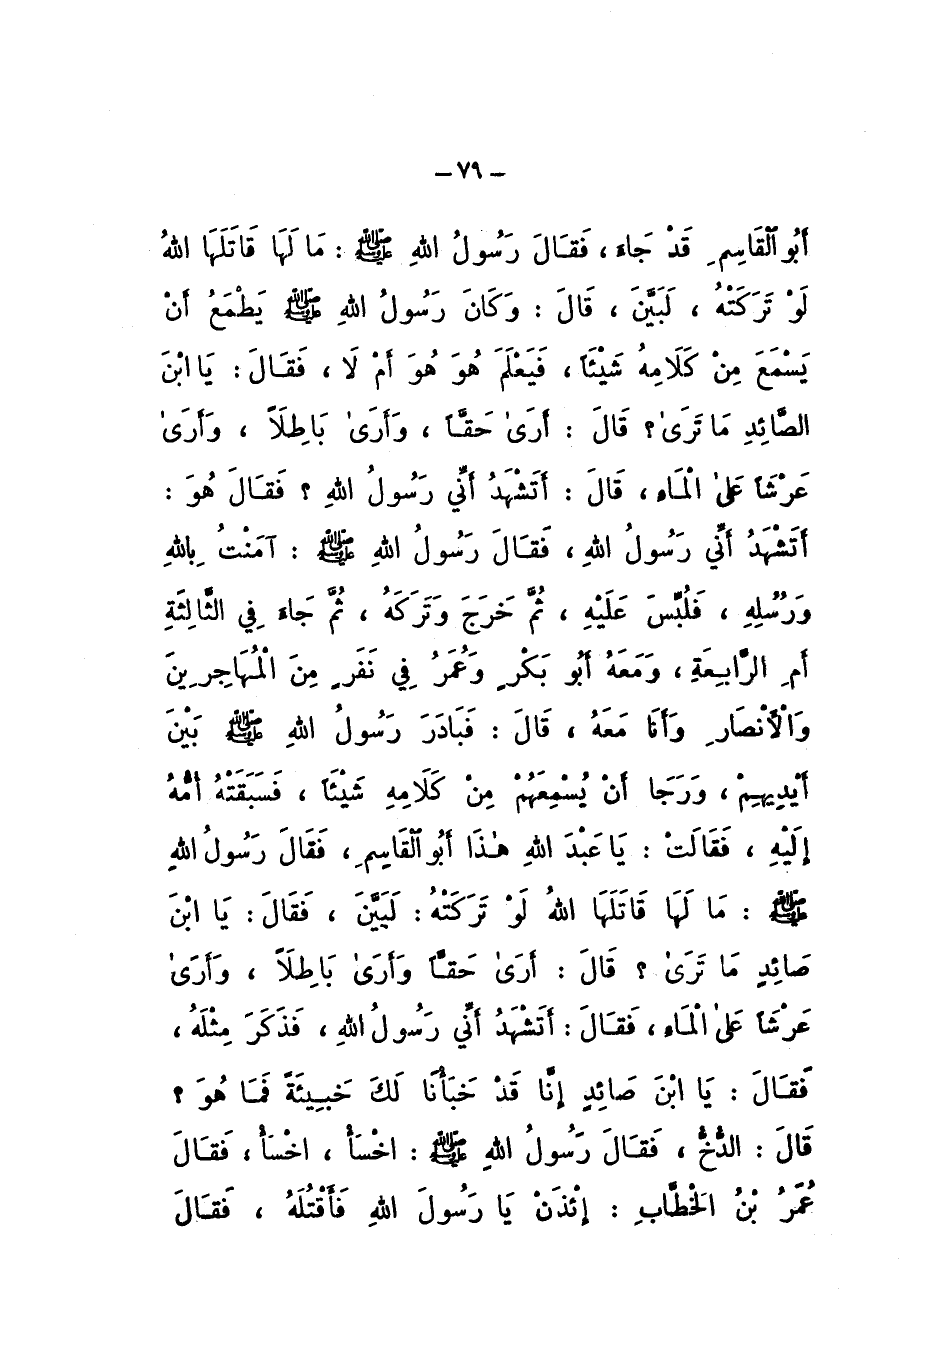 - ٧٩ -
أَبُو ٱلْقَاسِمِ قَدْ جَاءَ ، فَقَالَ رَسُولُ اللهِ ﷺ : مَا لَهَا قَاتَلَهَا اللهُ
لَوْ تَرَكَتْهُ ، لَبَيَّنَ ، قَالَ : وَكَانَ رَسُولُ اللهِ ﷺ يَطْمَعُ أَنْ
يَسْمَعَ مِنْ كَلَامِهِ شَيْئاً ، فَيَعْلَمَ هُوَ هُوَ أَمْ لَا ، فَقَالَ : يَا ابْنَ
الصَّائِدِ مَا تَرَىٰ ؟ قَالَ : أَرَىٰ حَقّاً ، وَأَرَىٰ بَاطِلاً ، وَأَرَىٰ
عَرْشاً عَلىٰ الْمَاءِ ، قَالَ : أَتَشْهَدُ أَنِّي رَسُولُ اللهِ ؟ فَقَالَ هُوَ :
أَتَشْهَدُ أَنِّي رَسُولُ اللهِ ، فَقَالَ رَسُولُ اللهِ ﷺ : آمَنْتُ بِاللهِ
وَرُسُلِهِ ، فَلُبِّسَ عَلَيْهِ ، ثُمَّ خَرَجَ وَتَرَكَهُ ، ثُمَّ جَاءَ فِي الثَّالِثَةِ
أَمِ الرَّابِعَةِ ، وَمَعَهُ أَبُو بَكْرٍ وَعُمَرُ فِي نَفَرٍ مِنَ الْمُهَاجِرِينَ
وَالْأَنْصَارِ وَأَنَا مَعَهُ ، قَالَ : فَبَادَرَ رَسُولُ اللهِ ﷺ بَيْنَ
أَيْدِيهِمْ ، وَرَجَا أَنْ يُسْمِعَهُمْ مِنْ كَلَامِهِ شَيْئاً ، فَسَبَقَتْهُ أُمُّهُ
إِلَيْهِ ، فَقَالَتْ : يَا عَبْدَ اللهِ هٰذَا أَبُو ٱلْقَاسِمِ ، فَقَالَ رَسُولُ اللهِ
ﷺ : مَا لَهَا قَاتَلَهَا اللهُ لَوْ تَرَكَتْهُ : لَبَيَّنَ ، فَقَالَ : يَا ابْنَ
صَائِدٍ مَا تَرَىٰ ؟ قَالَ : أَرَىٰ حَقّاً وَأَرَىٰ بَاطِلاً ، وَأَرَىٰ
عَرْشاً عَلىٰ الْمَاءِ ، فَقَالَ : أَتَشْهَدُ أَنِّي رَسُولُ اللهِ ، فَذَكَرَ مِثْلَهُ ،
فَقَالَ : يَا ابْنَ صَائِدٍ إِنَّا قَدْ خَبَأْنَا لَكَ خَبِيئَةً فَمَا هُوَ ؟
قَالَ : الدُّخُّ ، فَقَالَ رَسُولُ اللهِ ﷺ : اخْسَأْ ، اخْسَأْ ، فَقَالَ
عُمَرُ بْنُ الْخَطَّابِ : إِئْذَنْ يَا رَسُولَ اللهِ فَأَقْتُلَهُ ، فَقَالَ